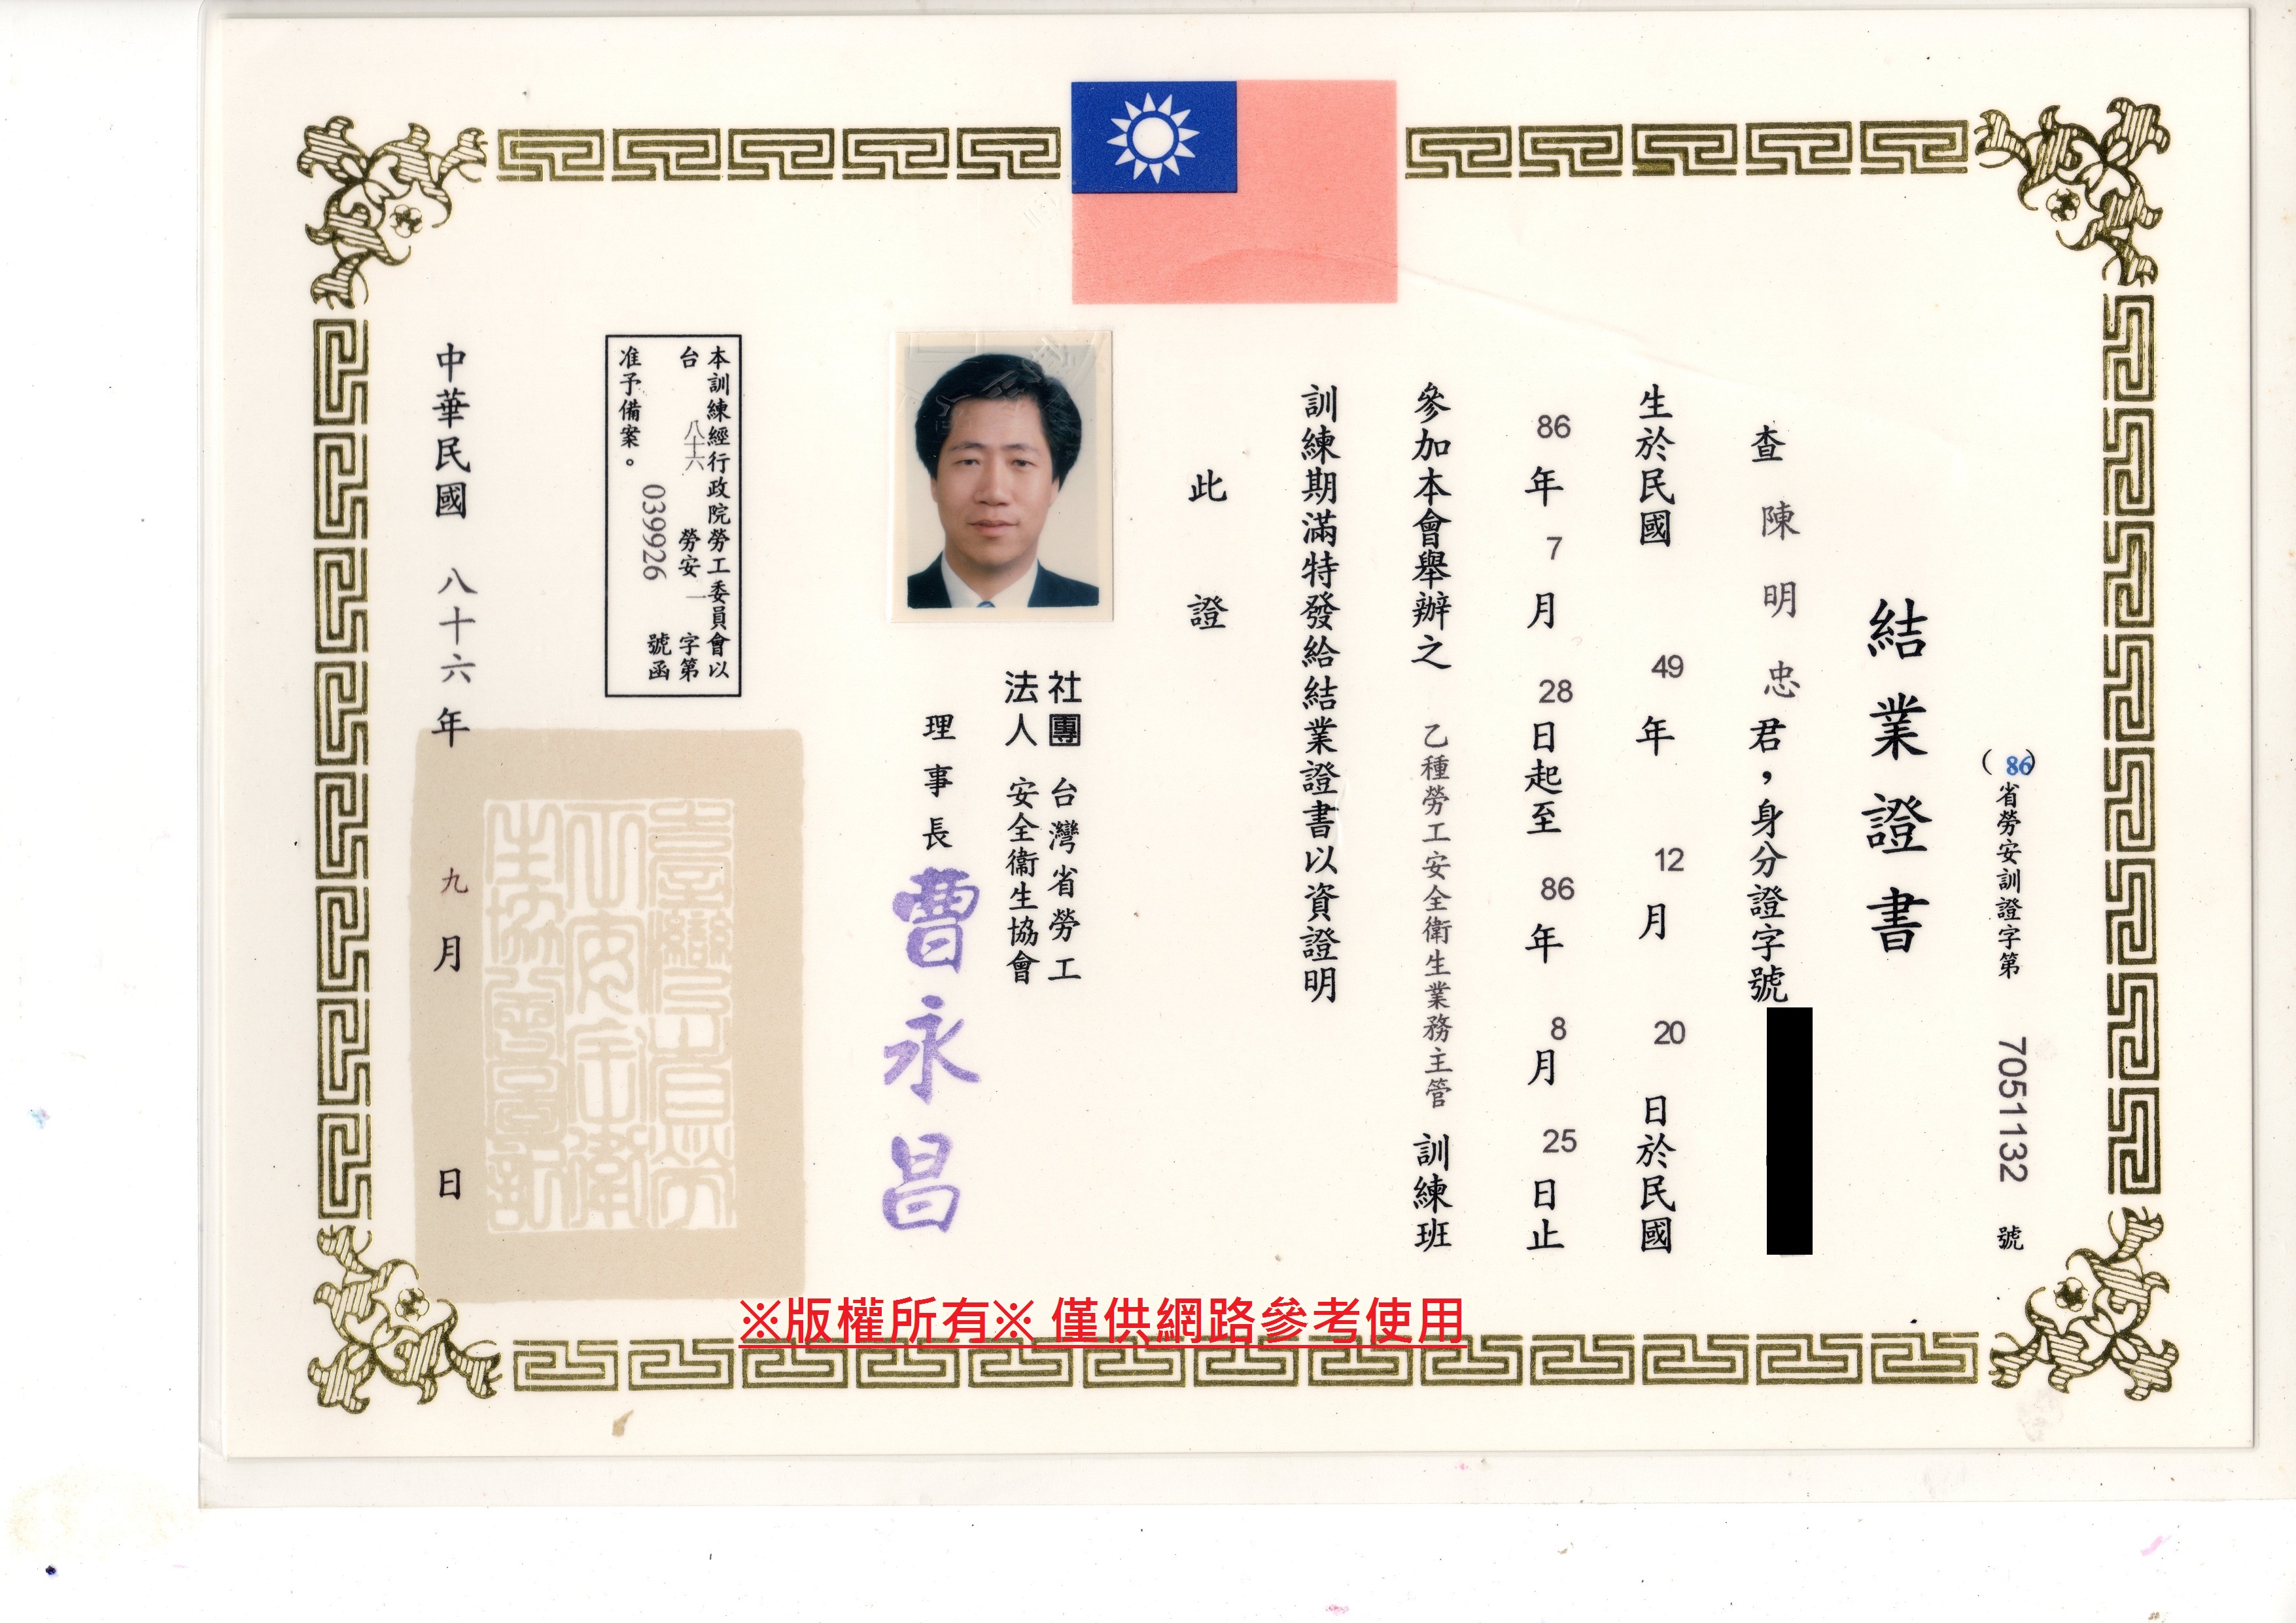 (86)省勞安訓證字第 7051132 號
結業證書
查 陳明忠 君，身分證字號
生於民國 49 年 12 月 20 日於民國
86 年 7 月 28 日起至 86 年 8 月 25 日止
參加本會舉辦之 乙種勞工安全衛生業務主管 訓練班
訓練期滿特發給結業證書以資證明
此證
社團法人 台灣省勞工安全衞生協會
理事長 曹永昌
本訓練經行政院勞工委員會以
台 八十六 勞安一 字第
039926 號函
准予備案。
中華民國 八十六 年 九 月 日
※版權所有※ 僅供網路參考使用